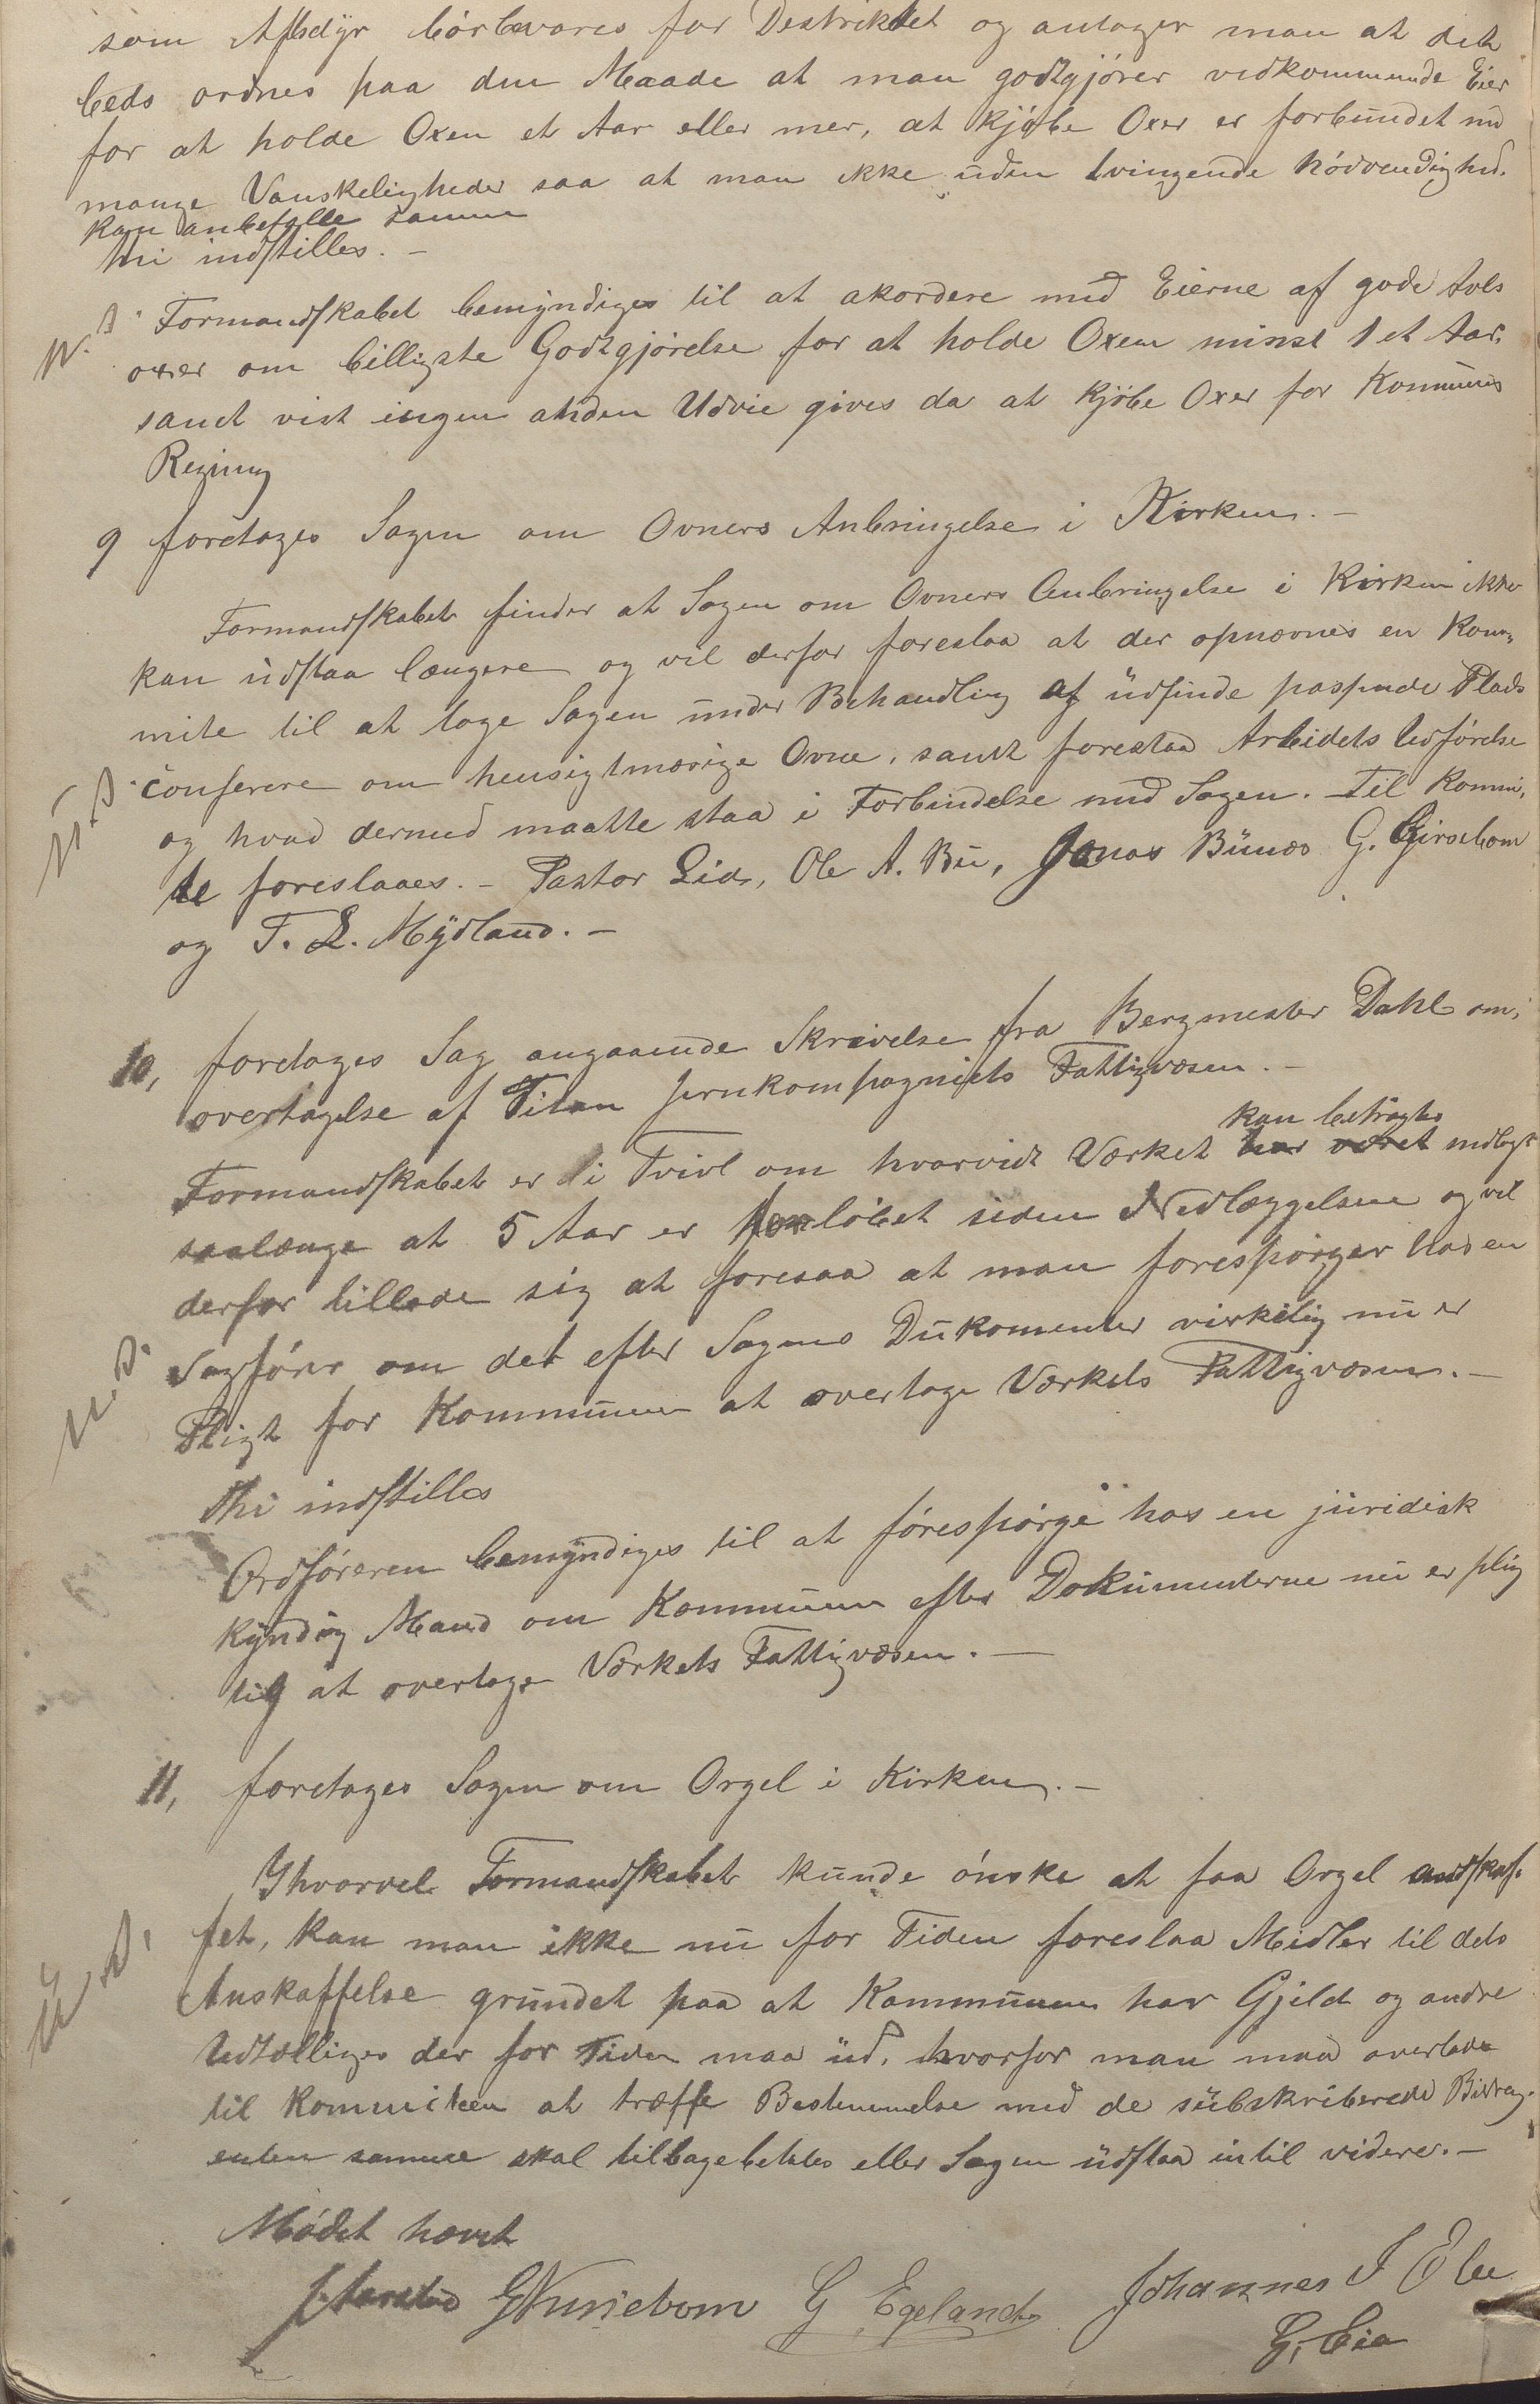 som Afledyr bör bevares for Destriktet og antager man at det
beds ordnes paa den Maade at man godtgjörer vedkommende Eier
for at holde Oxen et Aar eller mer, at kjöbe Oxer er forbundet md
mange Vanskeligheder saa at man ikke uden tvingende Nödvendighed.
kan anbefalle samme
thi indstilles. –
Formandskabet bemyndiges til at akordere med Eierne af gode Avls
oxer om billigste Godtgjörelse for at holde Oxen minst 1 et Aar,
samt vist ingen anden Udvie gives da at kjöbe Oxer for Kommunes
Regning
9 foretages Sagen om Ovners Anbringelse i Kirken. –
Formandskabet finder at Sagen om Ovners Anbringelse i Kirken ikke
kan udstaa længere og vil derfor foreslaa at der opnævnes en Kom-
mite til at tage Sagen under Behandling af udfinde passende Plads
conferere om hensigtmæsige Ovne, samt forestaa Arbeidets Udförelse
og hvad dermed maatte staa i Forbindelse med Sagen. Til Kommi,
te foreslaaes. – Pastor Lid, Ole A. Bu, Jonas Bunes G.
og T. L. Mydland. –
10, foretages Sag angaaende Skrivelse fra Bergmester Dahl om,
overtagelse af Titan Jernkompagniets Fattigvæsen. –
kan betragtes
Formandskabet er i Tvivl om hvorvidt Værket har været nedlagt
saalænge at 5 Aar er forlöbet siden Nedlæggelsen og vil
derfor tillade sig at foresaa at man forespörger hos en
Sagförer om det efter Sagens Dukomenter virkelig nu er
Pligt for Kommunen at overtage Værkets Fattigvæsen. –
Thi indstilles
Ordföreren bemyndiges til at forespörge hos en juridisk
kyndig Mand om Kommunen efter Dokumenterne nu er plig
tig at overtage Værkets Fattigvæsen. –
11, foretages Sagen om Orgel i Kirken. –
Ihvorvel Formandskabet kunde önske at faa Orgel andskaf-
fet, kan man ikke nu for Tiden foreslaa Midler til dets
Anskaffelse grundet paa at Kommunen har Gjeld og andre
Udtælliger der for Tiden maa ud, hvorfor man maa overlade
til Kommiteen at træffe Bestemmelse med de subskriberede Bidrag.
enten samme skal tilbagebetales eller Sagen udstaa intil videre. –
Mödet hævet
G Egeland Johannes I Eie
G. Eia